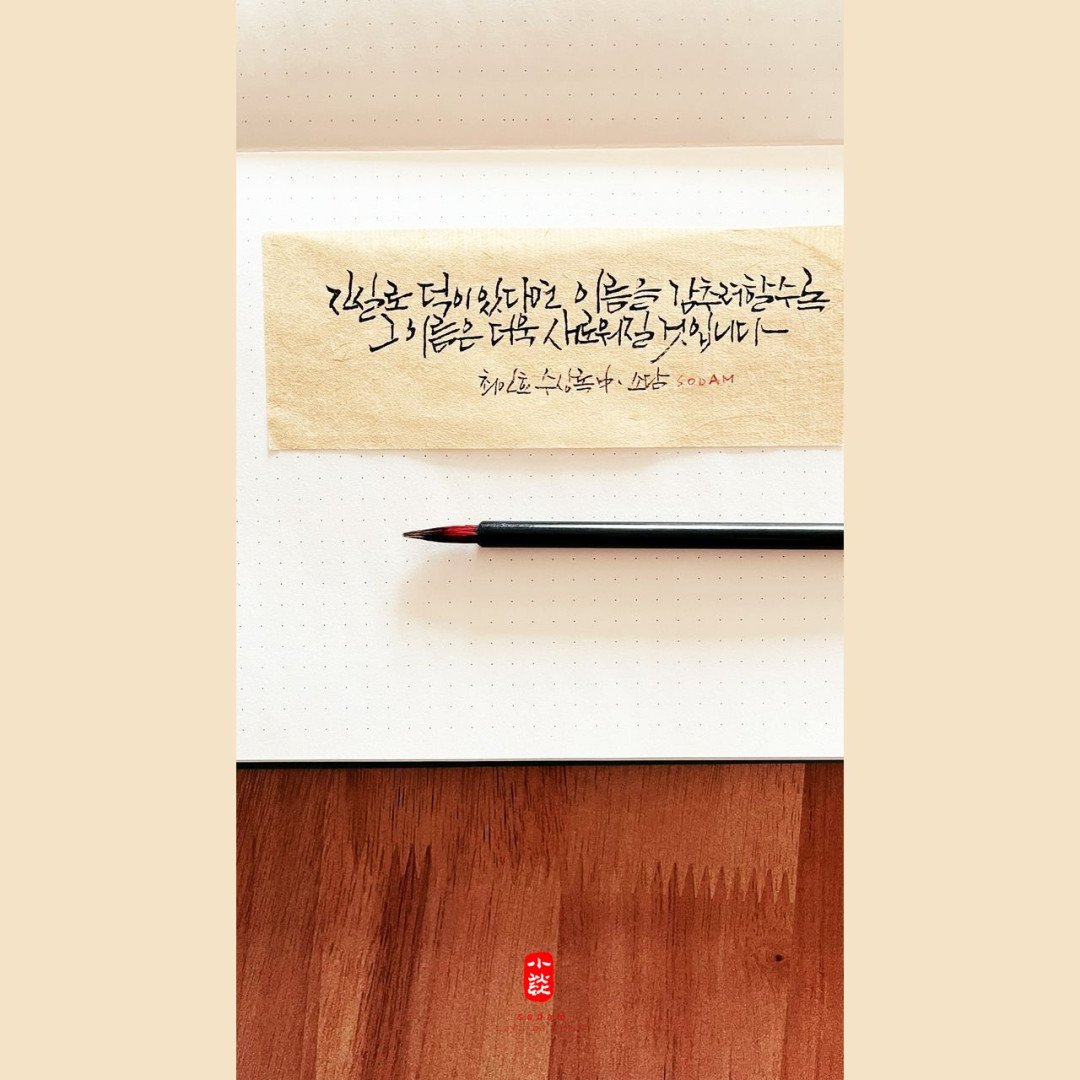 진실로 덕이 있다면 이름을 감추려 할수록
그 이름은 더욱 새로워질 것입니다
최인호 수상록 中. 소담 SODAM
小談
sodam